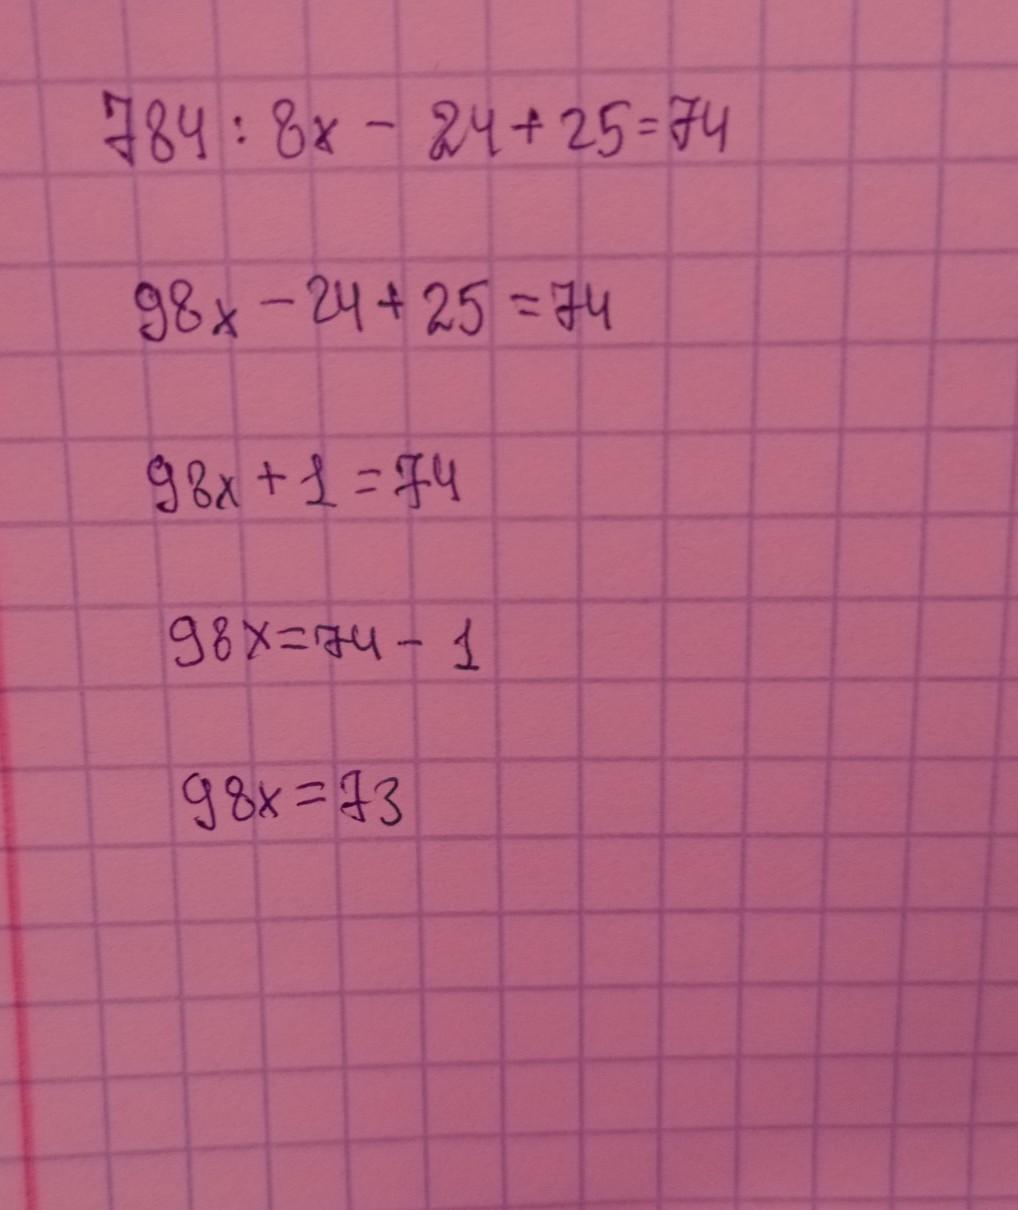 784 : 8x - 24 + 25 = 74
98x - 24 + 25 = 74
98x + 1 = 74
98x = 74 - 1
98x = 73